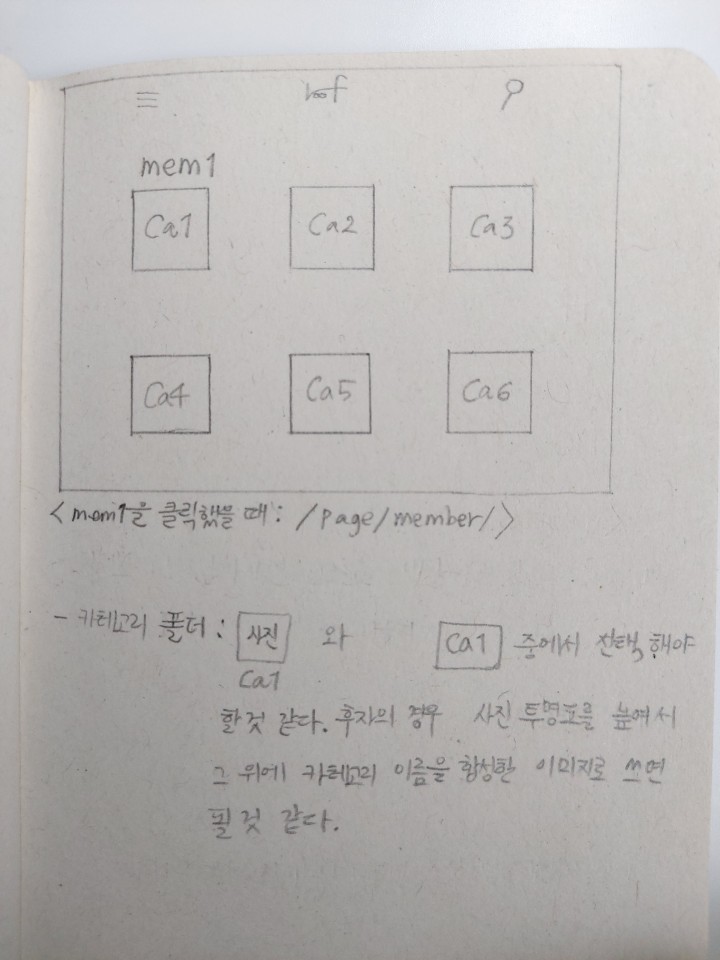 mem1
Ca1 Ca2 Ca3
Ca4 Ca5 Ca6
<mem1을 클릭했을 때: /page/member/>
- 카테고리 폴더: 사진 와 Ca1 중에서 선택해야
Ca1
할 것 같다. 후자의 경우 사진 투명도를 높여서
그 위에 카테고리 이름을 합성한 이미지로 쓰면
될 것 같다.